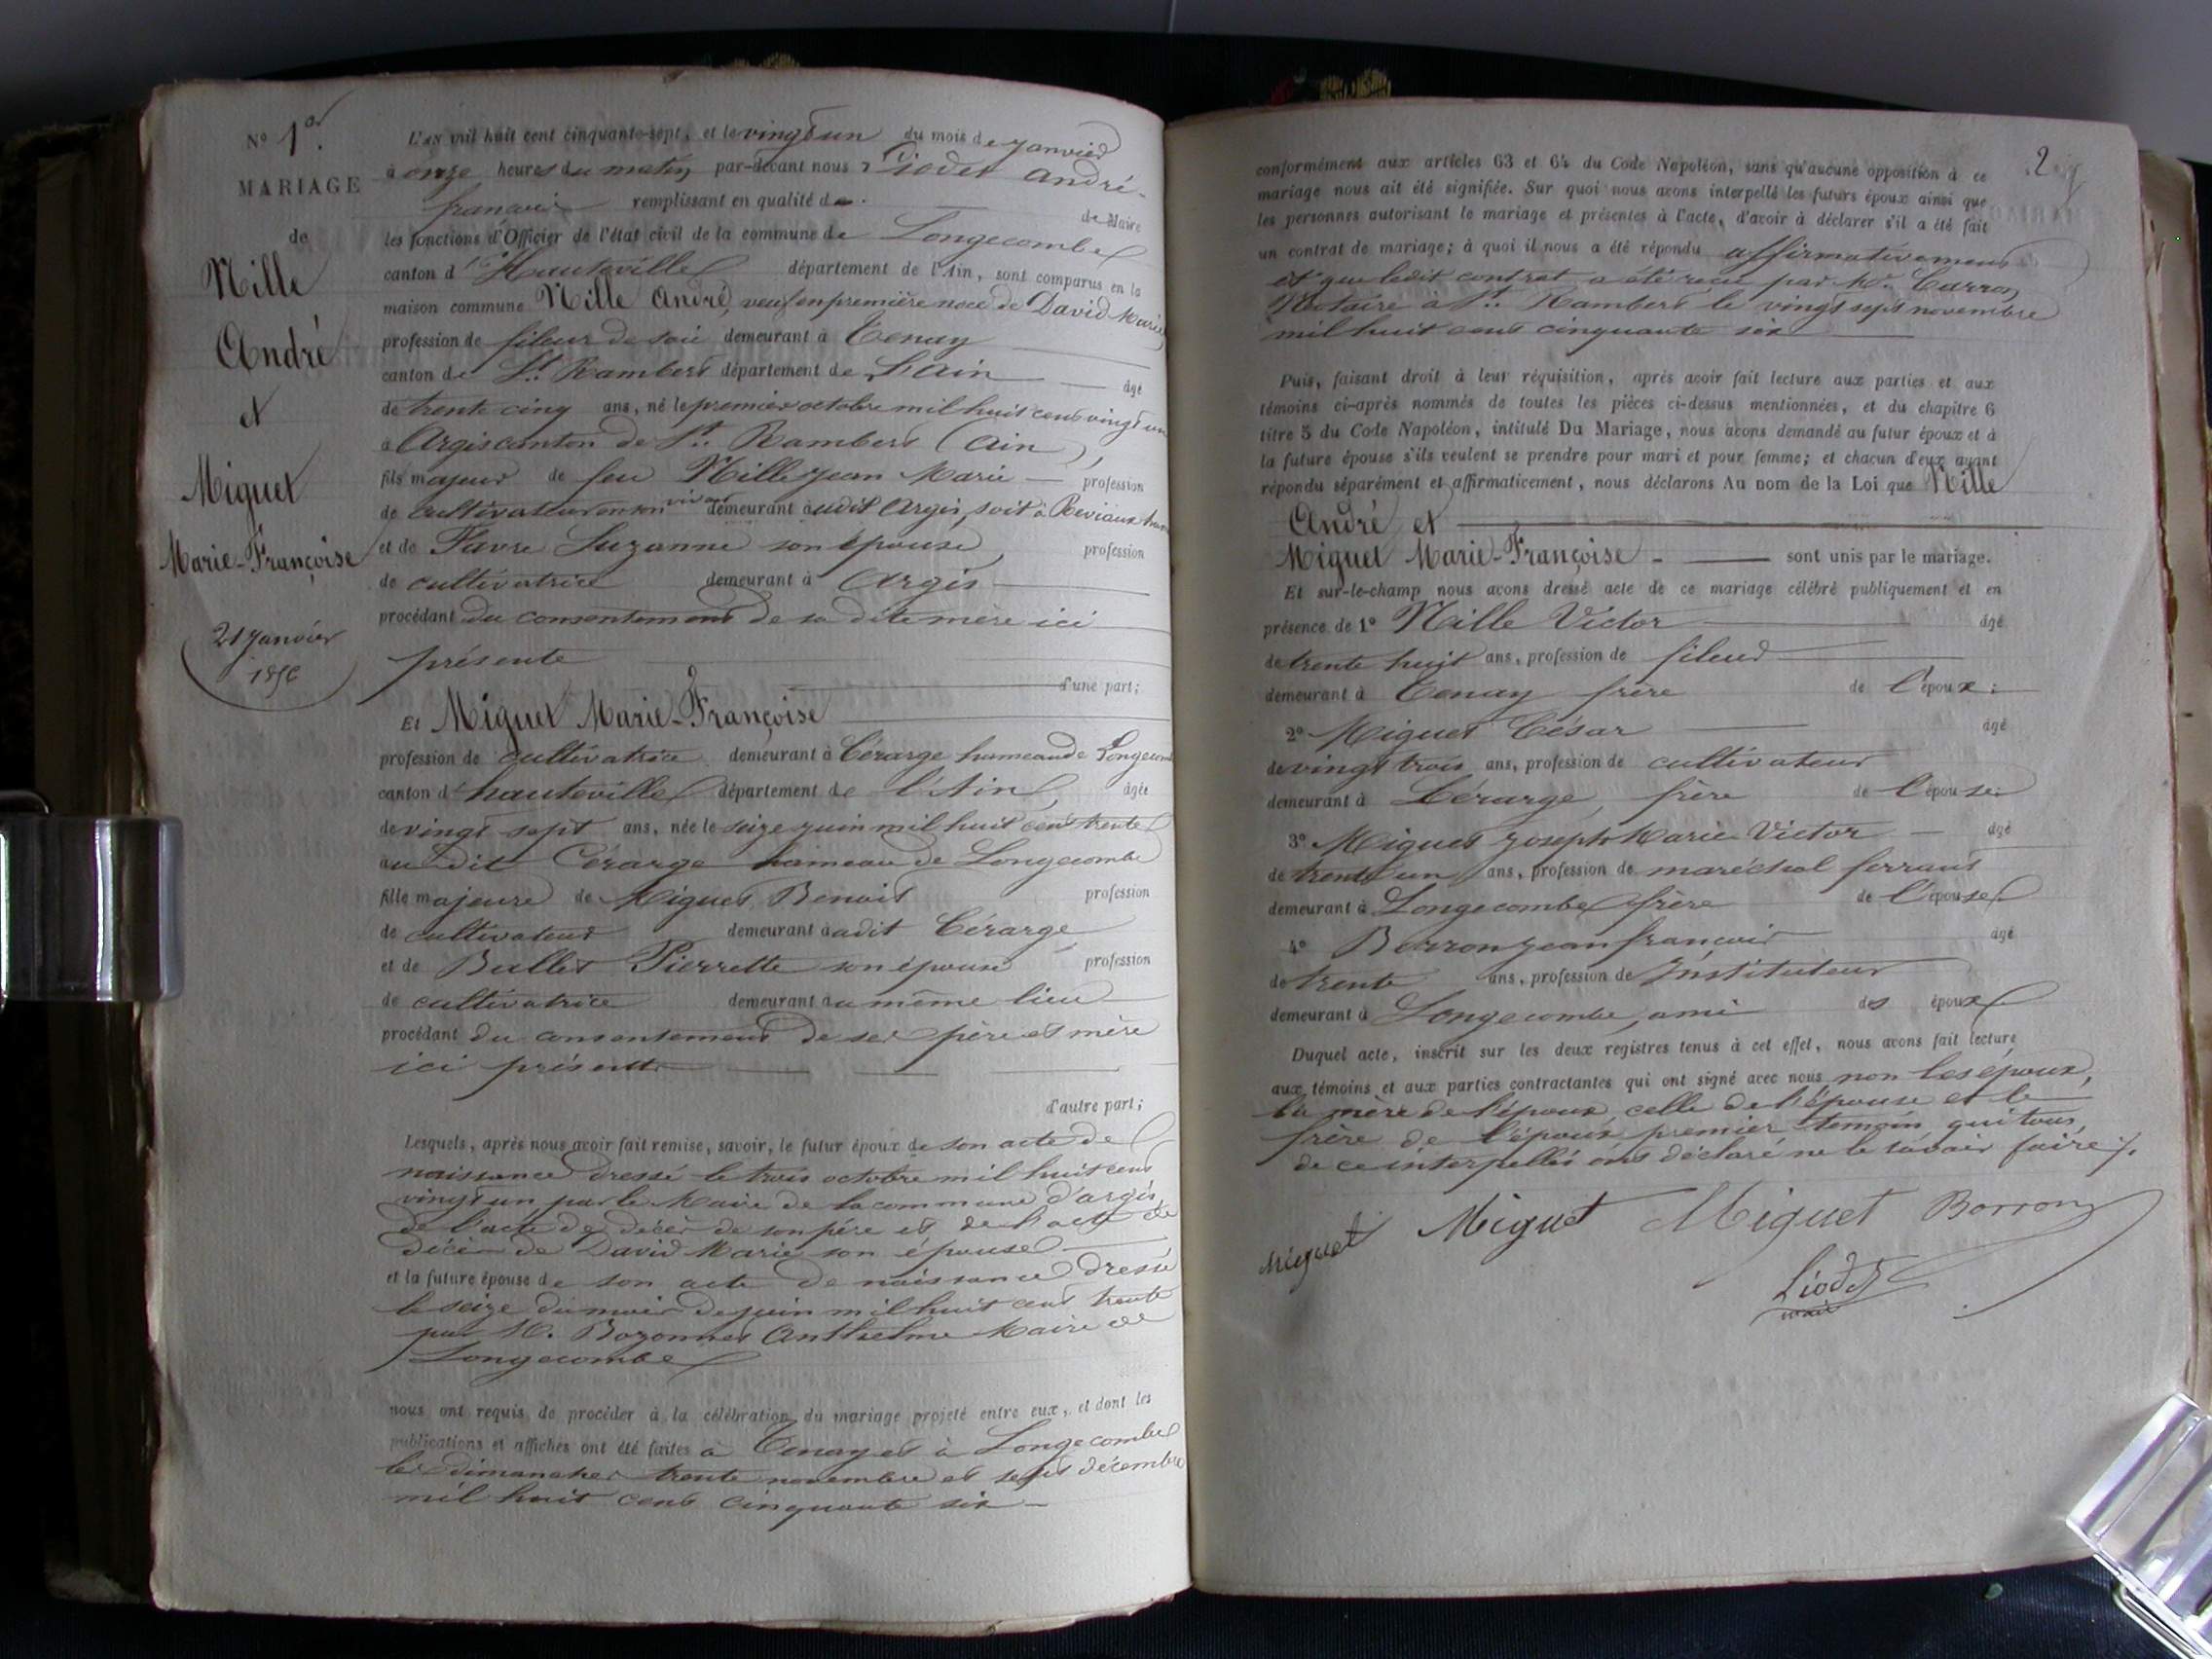 N° 1er
MARIAGE
de
Mille
André
et
Miguet
Marie-Françoise
21 Janvier
1856
L'AN mil huit cent cinquante-sept, et le vingt un du mois de janvier
à onze heures du matin par-devant nous Liodet André-
françois remplissant en qualité de Maire
les fonctions d'Officier de l'état civil de la commune de Longecombe
canton d'Hauteville département de l'Ain, sont comparus en la
maison commune Mille André, veuf en première noce de David Marie
profession de fileur de soie demeurant à Tenay
canton de St. Rambert département de L'Ain âgé
de trente cinq ans, né le premier octobre mil huit cent vingt un
à Argis canton de St. Rambert (Ain),
fils majeur de feu Mille Jean Marie profession
de cultivateur en son vivant demeurant audit Argis, soit à Reviaux
et de Favre Suzanne son épouse, profession
de cultivatrice demeurant à Argis
procédant du consentement de sa dite mère ici
présente
d'une part;
Et Miguet Marie-Françoise
profession de cultivatrice demeurant à Cérarge hameau de Longecom
canton d'hauteville département de l'Ain, âgée
de vingt sept ans, née le seize juin mil huit cent trente
au dit Cérarge hameau de Longecombe
fille majeure de Miguet Benoit profession
de cultivateur demeurant audit Cérarge
et de Ballet Pierrette son épouse profession
de cultivatrice demeurant au même lieu
procédant du consentement de ses père et mère
ici présents
d'autre part;
Lesquels, après nous avoir fait remise, savoir, le futur époux de son acte de
naissance dressé le trois octobre mil huit cent
vingt un par le Maire de la commune d'argis,
de l'acte de décès de son père et de l'acte de
décès de David Marie son épouse
et la future épouse de son acte de naissance dressé
le seize du mois de juin mil huit cent trente
par M. Bozonnet Anthelme Maire de
Longecombe
nous ont requis de procéder à la célébration du mariage projeté entre eux, et dont les
publications et affiches ont été faites à Tenay et à Longecombe
les dimanches trente novembre et sept décembre
mil huit cent cinquante six
2
conformément aux articles 63 et 64 du Code Napoléon, sans qu'aucune opposition à ce
mariage nous ait été signifiée. Sur quoi nous avons interpellé les futurs époux ainsi que
les personnes autorisant le mariage et présentes à l'acte, d'avoir à déclarer s'il a été fait
un contrat de mariage; à quoi il nous a été répondu affirmativement
et que ledit contrat a été reçu par Me. Carron
Notaire à St. Rambert le vingt sept novembre
mil huit cent cinquante six
Puis, faisant droit à leur réquisition, après avoir fait lecture aux parties et aux
témoins ci-après nommés de toutes les pièces ci-dessus mentionnées, et du chapitre 6
titre 5 du Code Napoléon, intitulé Du Mariage, nous avons demandé au futur époux et à
la future épouse s'ils veulent se prendre pour mari et pour femme; et chacun d'eux ayant
répondu séparément et affirmativement, nous déclarons Au nom de la Loi que Mille
André et
Miguet Marie-Françoise sont unis par le mariage.
Et sur-le-champ nous avons dressé acte de ce mariage célébré publiquement et en
présence de 1° Mille Victor âgé
de trente huit ans, profession de fileur
demeurant à Tenay frère de l'époux;
2° Miguet César âgé
de vingt trois ans, profession de cultivateur
demeurant à Cérarge, frère de l'épouse;
3° Miguet Joseph Marie Victor âgé
de trente un ans, profession de maréchal ferrant
demeurant à Longecombe frère de l'épouse
4° Borron Jean françois âgé
de trente ans, profession de Instituteur
demeurant à Longecombe, ami des époux
Duquel acte, inscrit sur les deux registres tenus à cet effet, nous avons fait lecture
aux témoins et aux parties contractantes qui ont signé avec nous non les époux,
la mère de l'époux, celle de l'épouse et le
frère de l'époux premier témoin qui tous,
de ce interpellés ont déclaré ne le savoir faire./.
Miguet Miguet Miguet Borron
Liodet
maire